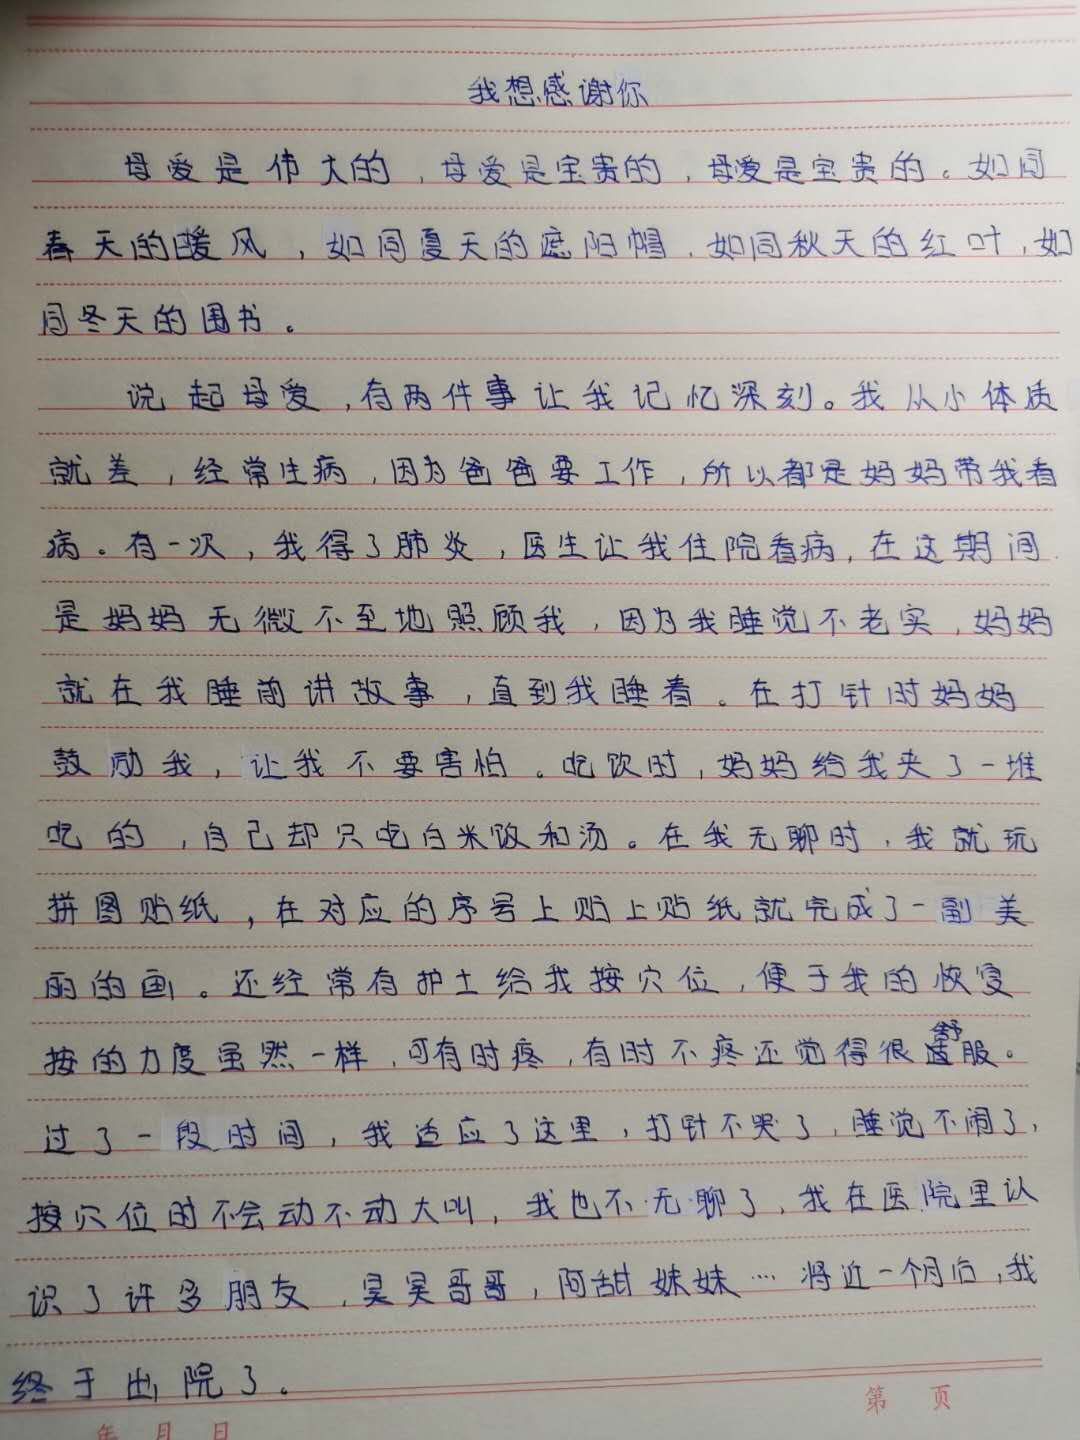 我想感谢你
母爱是伟大的，母爱是宝贵的，母爱是宝贵的。如同
春天的暖风，如同夏天的遮阳帽，如同秋天的红叶，如
同冬天的围书。
说起母爱，有两件事让我记忆深刻。我从小体质
就差，经常生病，因为爸爸要工作，所以都是妈妈带我看
病。有一次，我得了肺炎，医生让我住院看病，在这期间
是妈妈无微不至地照顾我，因为我睡觉不老实，妈妈
就在我睡前讲故事，直到我睡着。在打针时妈妈
鼓励我，让我不要害怕。吃饮时，妈妈给我夹了一堆
吃的，自己却只吃白米饭和汤。在我无聊时，我就玩
拼图贴纸，在对应的序号上贴上贴纸就完成了一副美
丽的画。还经常有护士给我按穴位，便于我的恢复
按的力度虽然一样，可有时疼，有时不疼还觉得很舒服。
过了一段时间，我适应了这里，打针不哭了，睡觉不闹了，
按穴位时不会动不动大叫，我也不无聊了，我在医院里认
识了许多朋友，昊昊哥哥，阿甜妹妹…将近一个月后，我
终于出院了。
第 页
年 月 日